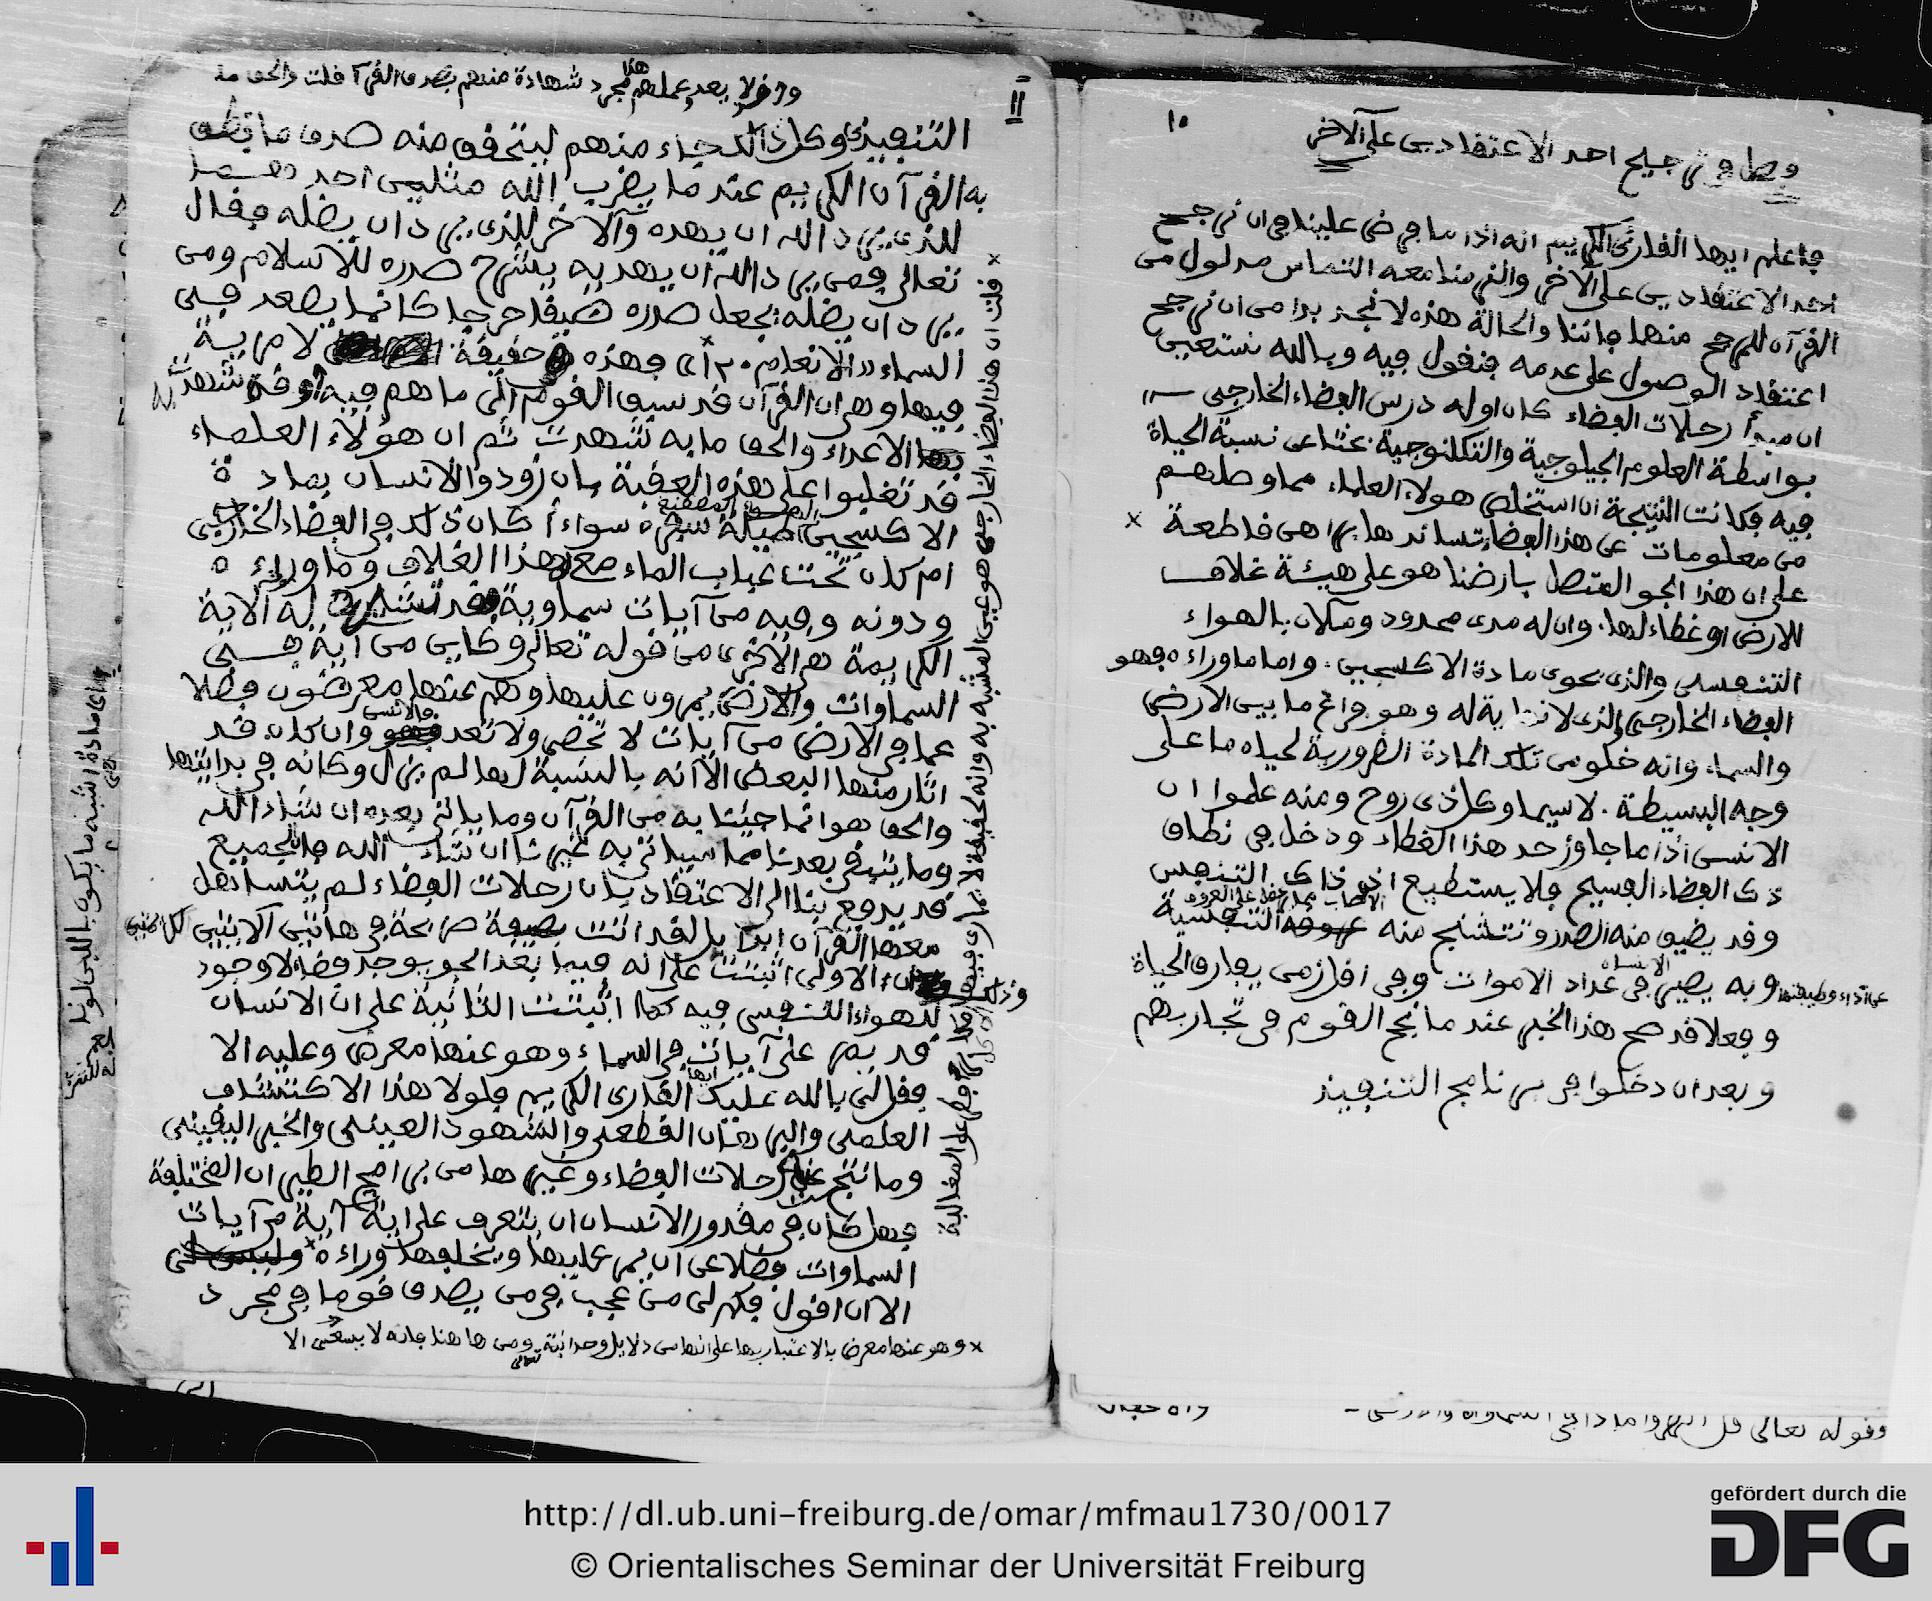 ١٠
فصل في ترجيح احد الاعتقادين على الآخر
فاعلم ايها القارئ الكريم انه اذا ما فرض علينا في ان نرجح
احد الاعتقادين على الآخر والتزمنا معه التماس مدلول من
القرآن للمرجح منها فاننا والحالة هذه لا نجد بدا من ان نرجح
اعتقاد الوصول على عدمه فنقول فيه وبالله نستعين
ان مبدأ رحلات الفضاء كان اوله درس الفضاء الخارجي
بواسطة العلوم الجيلوجية والتكلنوجية عن نسبة الحياة
فيه فكانت النتيجة ان استخلص هولاء العلماء مما وصلهم
من معلومات عن هذا الفضاء قاطعة ×
على ان هذا الجو المتصل بارضنا هو على هيئة غلاف
للارض او غطاء لها، وان له مدى محدود وملآن بالهواء
التنفسى والذى يحوى مادة الاكسجين. واما ما وراءه فهو
الفضاء الخارجي الذى لا نهاية له وهو فراغ ما بين الارض
والسماء وانه خلو من تلك المادة الضرورية لحياة ما على
وجه البسيطة. لا سيما وكل ذى روح ومنه علموا ان
الانسى اذا ما جاوز حد هذا الغطاء ودخل في نطاق
ذى الفضاء الفسيح فلا يستطيع اذ ذاك التنفس
وقد يضيق منه الصدر وتتشنج منه التنفسية
وبه يصير الانسان في عداد الاموات وفي اقل زمن يفارق الحياة
عن اداء وظيفتها
وفعلا قد صح هذا الخبر عند ما نجح القوم في تجاربهم
وبعد ان دخلوا في برنامج التنفيذ
وقوله تعالى قل انظروا ماذا في السماوات والارض
١١
يعد عملهم هذا مجرد شهادة منهم بصدق القرآن قلت والحق ما
التنفيذى وكل ذالك جاء منهم ليتحقق منه صدق ما نطق
به القرآن الكريم عند ما يضرب الله مثلين احدهما
للذى يريد الله ان يهده والآخر للذى يريد ان يضله فقال
تعالى فمن يرد الله ان يهديه يشرح صدره للاسلام ومن
يرد ان يضله يجعل صدره ضيقا حرجا كانما يصعد في
السماء «الانعام» فهذه حقيقة لا مرية
فيها وهى ان القرآن قد سبق القوم الى ما هم فيه وقد شهدت له
الاعداء والحق ما به شهدت ثم ان هؤلاء العلماء
قد تغلبوا على هذه العقبة بان زودوا الانسان بمادة
الاكسجين طيلة سفره سواءأ كان ذلك في الفضاء الخارجي
ام كان تحت عباب الماء مع هذا الغلاف وما وراءه
ودونه وفيه من آيات سماوية له الآية
الكريمة هى الاخرى من قوله تعالى وكاين من آية في
السماوات والارض يمرون عليها وهم عنها معرضون فضلا
عما في الارض من آيات لا تحصى ولا تعد والانسى وان كان قد
اثار منها البعض الا انه بالنسبة لها لم يزل وكانه في بدايتها
والحق هو انما جئنا به من القرآن وما ياتي بعده ان شاء الله
وما يتبقى بعدنا مما سياتي به غيرنا ان شاء الله فالجميع
قد يدفع بنا الى الاعتقاد بان رحلات الفضاء لم يتساهل
معها القرآن ابدا بل لقد اتت بصيغة صريحة في هاتين الايتين الكريمتين
الاولى اثبتت على انه فيما بعد الجو يوجد فضا لا وجود
للهواء التنفسى فيه كما اثبتت الثانية على ان الانسان
قد يمر على آيات في السماء وهو عنها معرض وعليه الا
فقل لى بالله عليك ايها القارى الكريم فلولا هذا الاكتشاف
العلمى والبرهان القطعى والشهود العينى والخبر اليقينى
وما نتج عن رحلات الفضاء وغيرها من برامج الطيران المختلفة
فهل كان في مقدور الانسان ان يتعرف على اية آية من آيات
السماوات فضلا عن ان يمر عليها ويخلفها وراءه ×
الا ان اقول فكم لى من عجب في من يصدق قوما في مجرد
× وهو عنها معرض بالاعتبار بها على انها من دلايل وحدانيته تعالى ومن ها هنا فانه لا يسعنى الا
× قلت ان هذا الفضاء الخارجي هو عين المشبه به وانه لحقيقة لا تمارى فيها
http://dl.ub.uni-freiburg.de/omar/mfmau1730/0017
© Orientalisches Seminar der Universität Freiburg
gefördert durch die
DFG